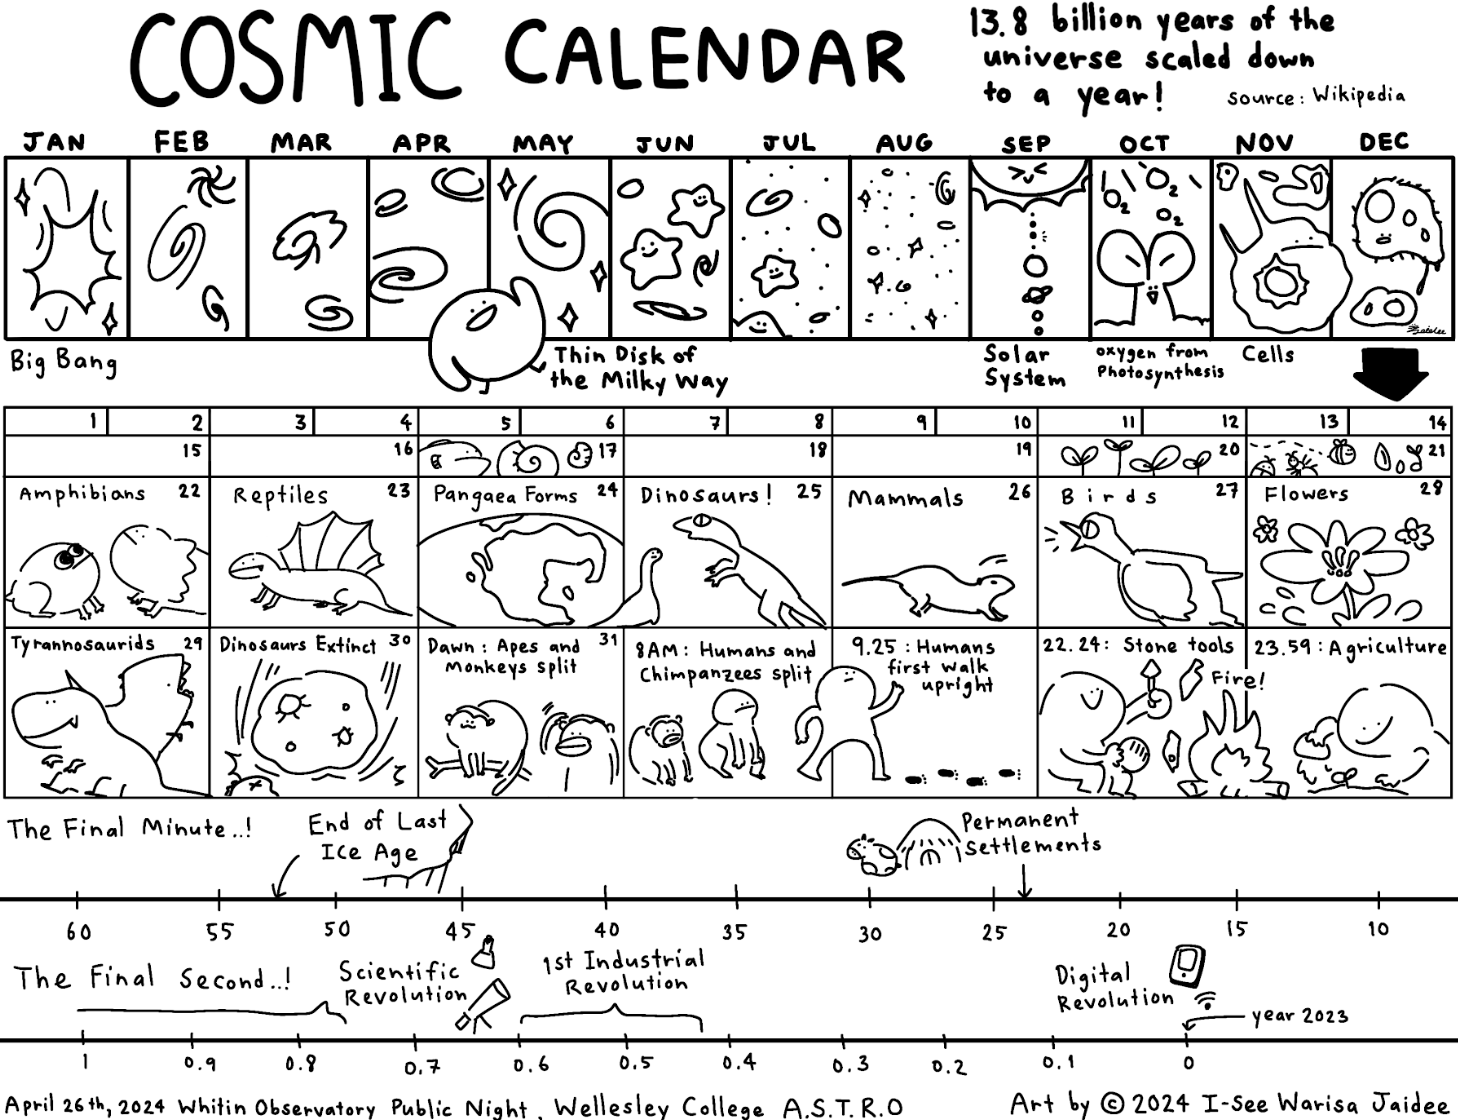 COSMIC CALENDAR
13.8 billion years of the
universe scaled down
to a year!
source: Wikipedia
JAN FEB MAR APR MAY JUN JUL AUG SEP OCT NOV DEC
O2
O2
O2
Big Bang
Thin Disk of
the Milky Way
Solar
System
oxygen from
Photosynthesis
Cells
1 2 3 4 5 6 7 8 9 10 11 12 13 14
15 16 17 18 19 20 21
Amphibians 22
Reptiles 23
Pangaea Forms 24
Dinosaurs! 25
Mammals 26
Birds 27
Flowers 28
Tyrannosaurids 29
Dinosaurs Extinct 30
Dawn: Apes and 31
Monkeys split
8AM: Humans and
Chimpanzees split
9.25: Humans
first walk
upright
22.24: Stone tools
Fire!
23.59: Agriculture
The Final Minute..!
End of Last
Ice Age
Permanent
Settlements
60 55 50 45 40 35 30 25 20 15 10
The Final Second..!
Scientific
Revolution
1st Industrial
Revolution
Digital
Revolution
year 2023
1 0.9 0.8 0.7 0.6 0.5 0.4 0.3 0.2 0.1 0
April 26th, 2024 Whitin Observatory Public Night, Wellesley College A.S.T.R.O
Art by © 2024 I-See Warisa Jaidee